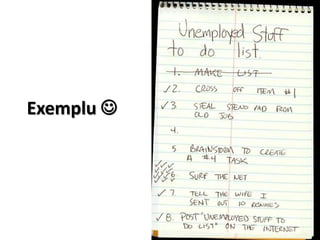 Exemplu ☺
Unemployed Stuff
to do list.
1. MAKE LIST
✓2. CROSS OFF ITEM #1
✓3. STEAL STENO PAD FROM
OLD JOB
4.
5 BRAINSTORM TO CREATE
A #4 TASK
✓✓✓✓✓✓✓✓✓✓6. SURF THE NET
✓7. TELL THE WIFE I
SENT OUT 10 RESUMES
✓8. POST "UNEMPLOYED STUFF TO
DO LIST" ON THE INTERNET